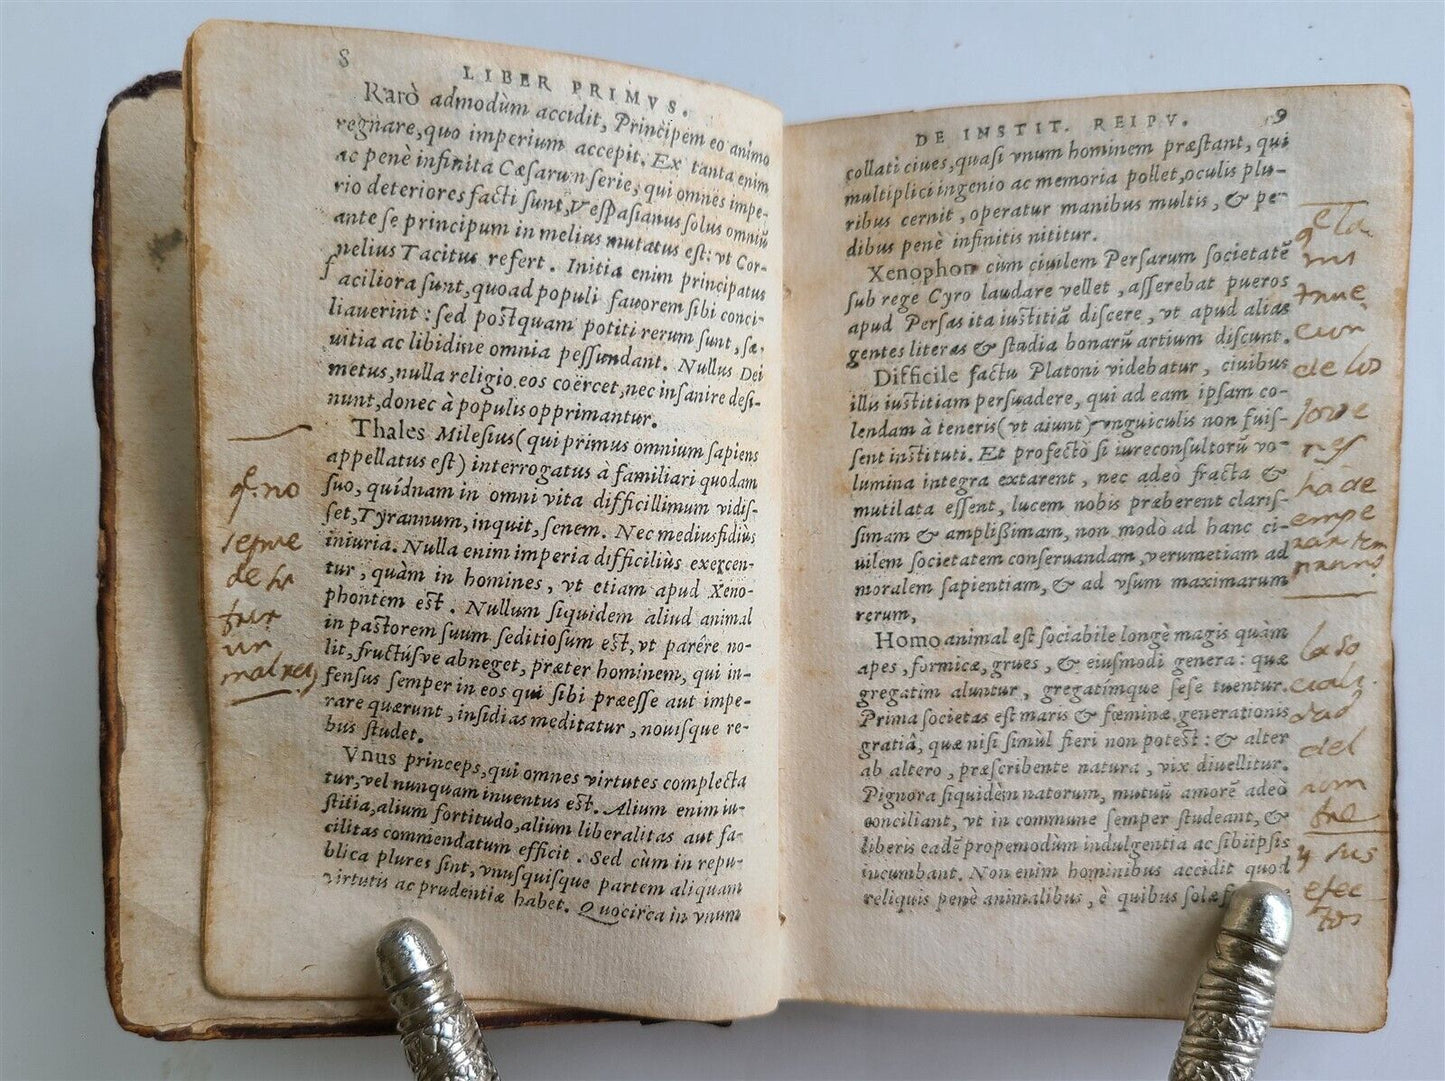 8
LIBER PRIMVS.
Rarò admodùm accidit, Principem eo animo
regnare, quo imperium accepit. Ex tanta enim
ac penè infinita Cæsarum serie, qui omnes impe-
rio deteriores facti sunt, Vespasianus solus omniũ
ante se principum in melius mutatus est: vt Cor-
nelius Tacitus refert. Initia enim principatus
faciliora sunt, quoad populi fauorem sibi conci-
liauerint: sed postquam potiti rerum sunt, sæ-
uitia ac libidine omnia pessundant. Nullus Dei
metus, nulla religio eos coërcet, nec insanire desi-
nunt, donec à populis opprimantur.
Thales Milesius (qui primus omnium sapiens
appellatus est) interrogatus à familiari quodam
suo, quídnam in omni vita difficillimum vidis-
set, Tyrannum, inquit, senem. Nec mediusfidiùs
iniuria. Nulla enim imperia difficiliùs exercen-
tur, quàm in homines, vt etiam apud Xeno-
phontem est. Nullum siquidem aliud animal
in pastorem suum seditiosum est, vt parêre no-
lit, fructúsve abneget, præter hominem, qui in-
fensus semper in eos qui sibi præesse aut impe-
rare quærunt, insidias meditatur, nouisque re-
bus studet.
Vnus princeps, qui omnes virtutes complecta
tur, vel nunquam inuentus est. Alium enim iu-
stitia, alium fortitudo, alium liberalitas aut fa-
cilitas commendatum efficit. Sed cùm in repu-
blica plures sint, vnusquisque partem aliquam
virtutis ac prudentiæ habet. Quocirca in vnum
q̃. no
se pue
de ha
un
DE INSTIT. REIPV.
9
collati ciues, quasi vnum hominem præstant, qui
multiplici ingenio ac memoria pollet, oculis plu-
ribus cernit, operatur manibus multis, & pe-
dibus penè infinitis nititur.
Xenophon cùm ciuilem Persarum societatẽ
sub rege Cyro laudare vellet, asserebat pueros
apud Persas ita iustitiã discere, vt apud alias
gentes literas & studia bonarũ artium discunt.
Difficile factu Platoni videbatur, ciuibus
illis iustitiam persuadere, qui ad eam ipsam co-
lendam à teneris (vt aiunt) vnguiculis non fuis-
sent instituti. Et profectò si iureconsultorũ vo-
lumina integra extarent, nec adeò fracta &
mutilata essent, lucem nobis præberent claris-
simam & amplißimam, non modò ad hanc ci-
uilem societatem conseruandam, verumetiam ad
moralem sapientiam, & ad vsum maximarum
rerum,
Homo animal est sociabile longè magis quàm
apes, formicæ, grues, & eiusmodi genera: quæ
gregatim aluntur, gregatimque sese tuentur.
Prima societas est maris & fœminæ, generationis
gratiâ, quæ nisi simùl fieri non potest: & alter
ab altero, præscribente natura, vix diuellitur.
Pignora siquidèm natorum, mutuũ amorẽ adeò
conciliant, vt in commune semper studeant, &
liberis eadẽ propemodùm indulgentia ac sibiipsis
incumbant. Non enim hominibus accidit quod
reliquis penè animalibus, è quibus solæ
de los
joue
nes
ha de
empe
la so
ciali
dad
del
y sus
efec
tos